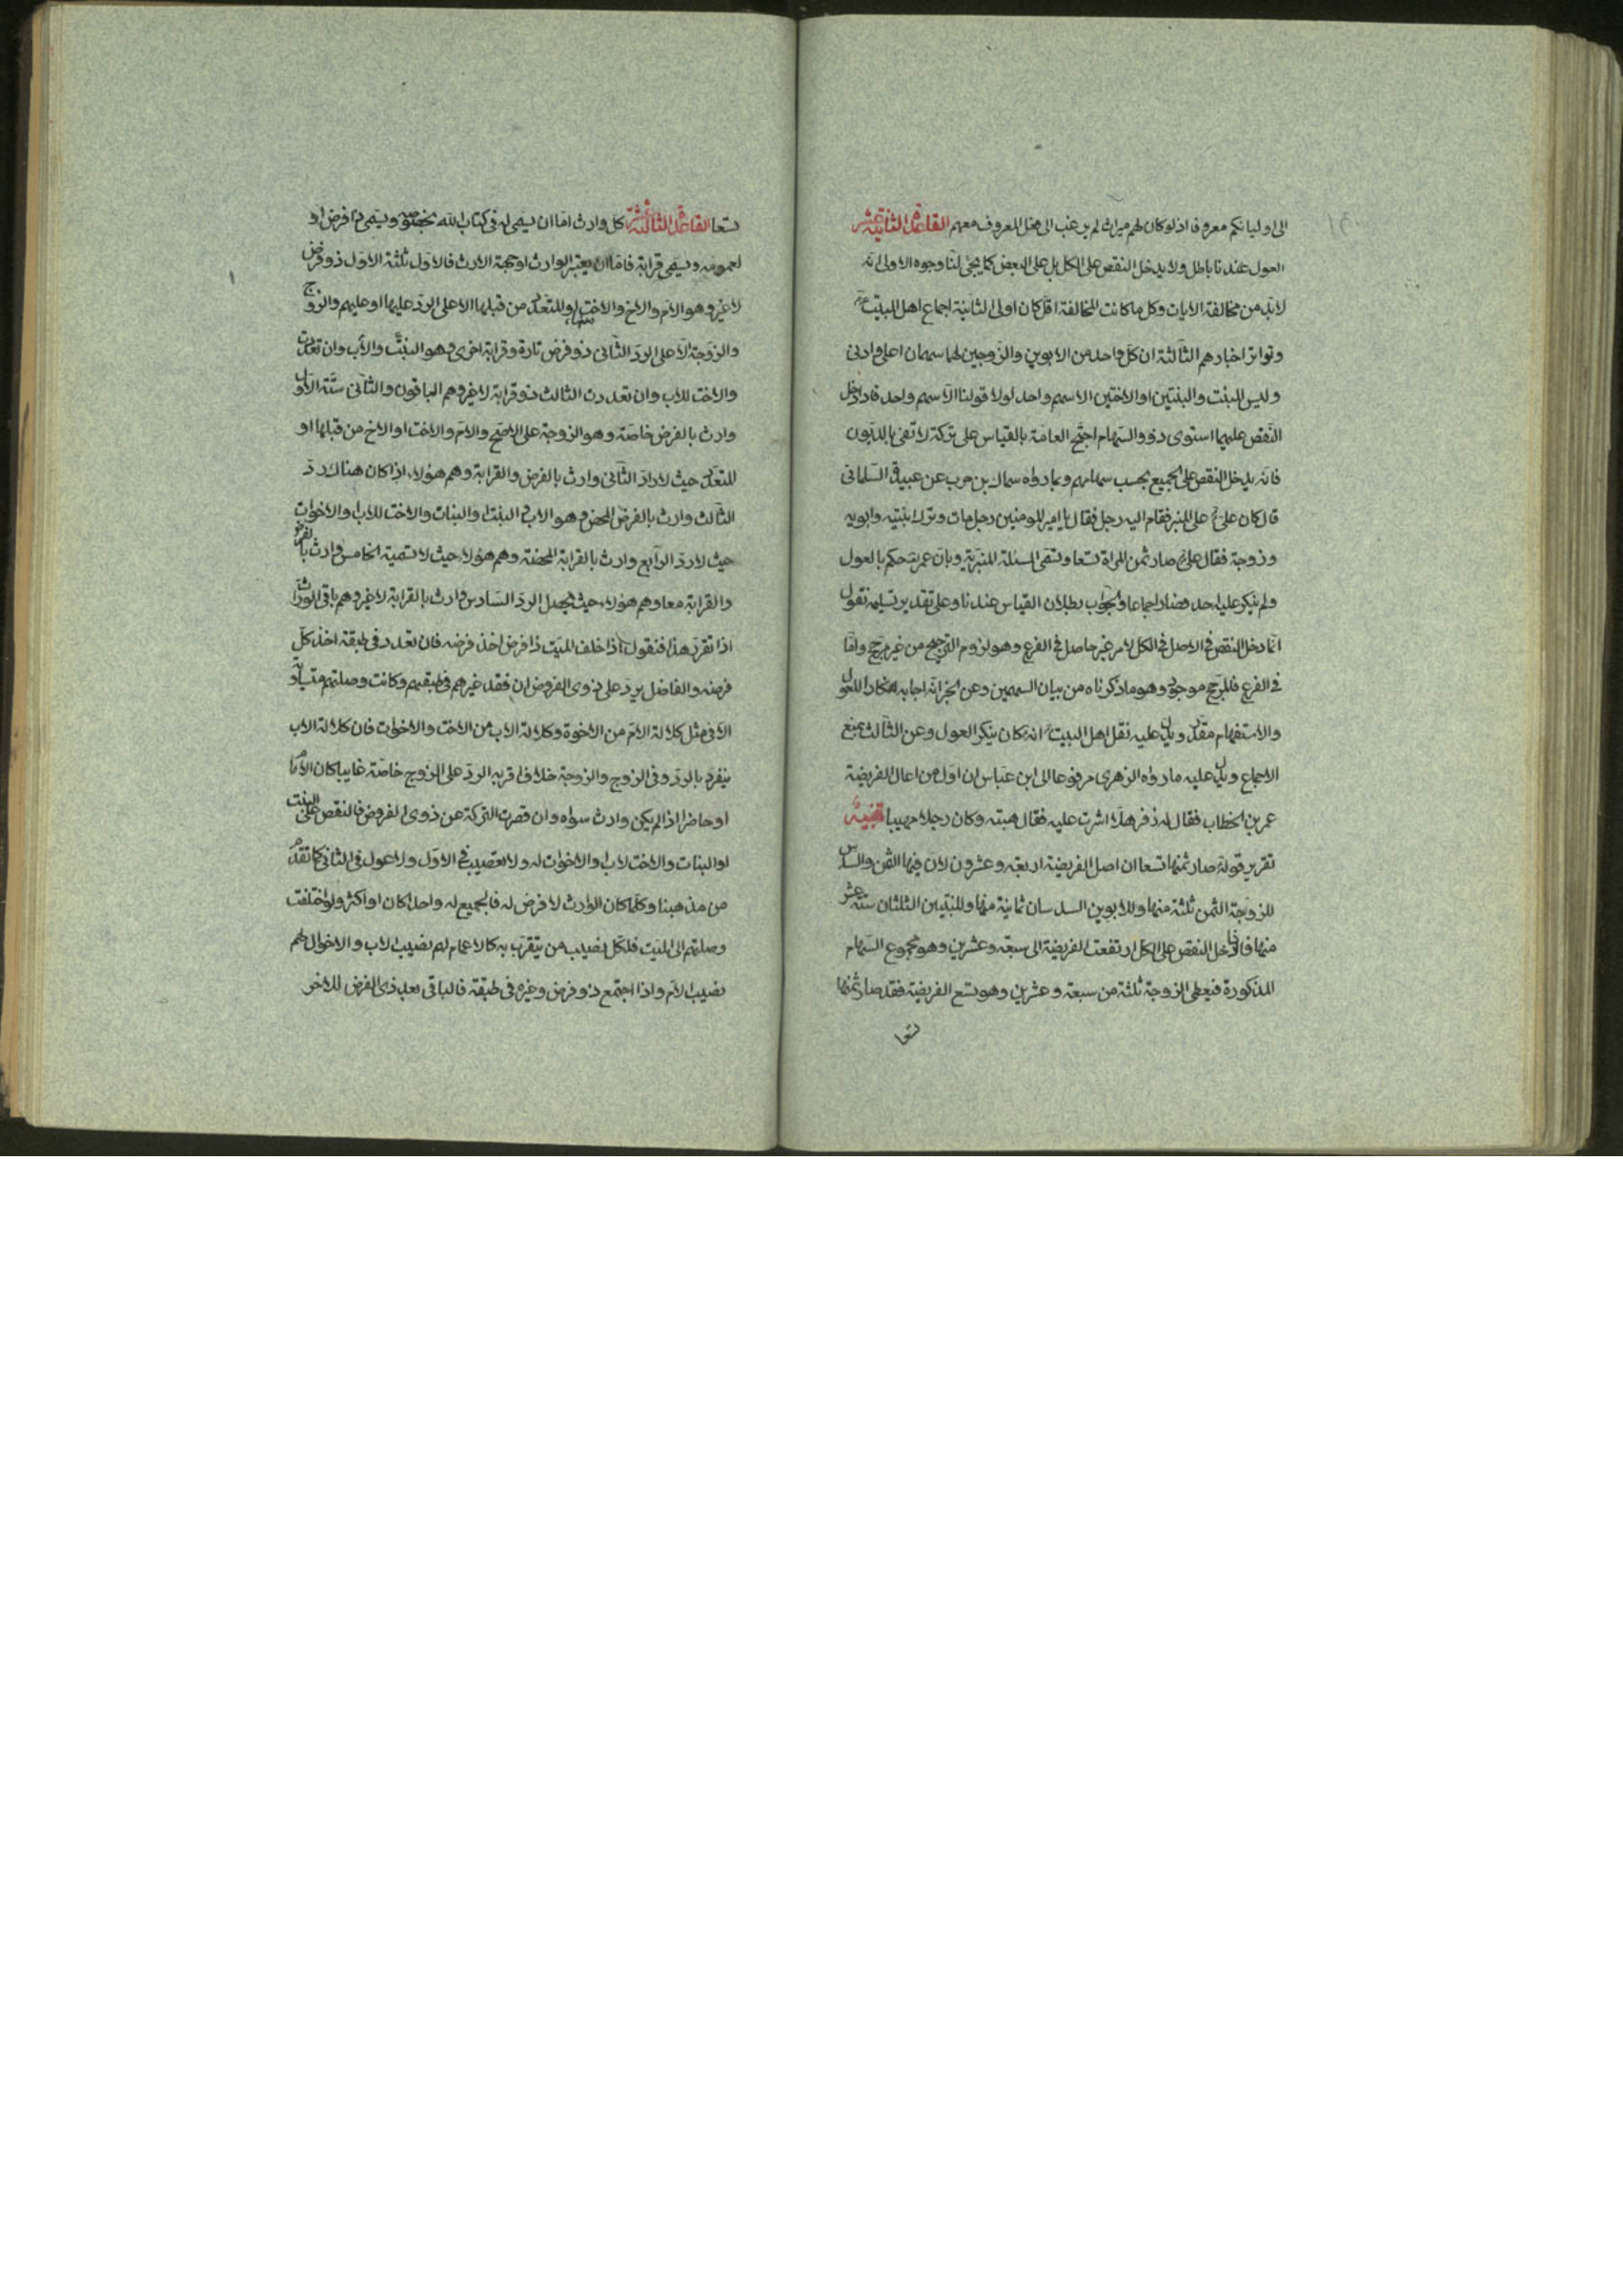 الى اوليائكم معروفا اذ لو كان لهم ميراث لم يرغب الى فعل المعروف معهم القاعدة الثانية عشر
العول عندنا باطل ولا يدخل النقص على الكل بل على البعض كما يجئ لنا وجوه الاولى انه
لابد من مخالفة الايات وكل ما كانت المخالفة اقل كان اولى الثانية اجماع اهل البيت
وتواتر اخبارهم الثالثة ان كل واحد من الابوين والزوجين لهما سهمان اعلى وادنى
وليس للبنت والبنتين او الاختين الا سهم واحد لولا قولنا الا سهم واحد فاذا دخل
النقص عليهما استوى ذوو السهام احتج العامة بالقياس على تركة لا تفى بالديون
فانه يدخل النقص على الجميع بحسب سهامهم وبما رواه سماك بن حرب عن عبيدة السلمانى
قال كان على على المنبر فقام اليه رجل فقال يا امير المومنين رجل مات وترك ابنتيه وابويه
وزوجة فقال على صار ثمن المراة تسعا وتسمى المسئلة المنبرية وبان عمر حكم بالعول
ولم ينكر عليه احد فصار اجماعا والجواب بطلان القياس عندنا وعلى تقدير تسليمه نقول
انما دخل النقص فى الاصل فى الكل لامر غير حاصل فى الفرع وهو لزوم الترجيح من غير مرجح واما
فى الفرع فالمرجح موجود وهو ما ذكرناه من بيان السهمين وعن الخبر انه اجابه انكارا للعول
والاستفهام مقدر ويدل عليه نقل اهل البيت انه كان ينكر العول وعن الثالث بمنع
الاجماع ويدل عليه ما رواه الزهرى مرفوعا الى ابن عباس ان اول من اعال الفريضة
عمر بن الخطاب فقال له زفر هلا اشرت عليه فقال هبته وكان رجلا مهيبا تنبيه
تقرير قوله صار ثمنها تسعا ان اصل الفريضة اربعة وعشرون لان فيها الثمن والسدس
للزوجة الثمن ثلثة منها وللابوين السدسان ثمانية منها وللبنتين الثلثان ستة عشر
منها فاذا دخل النقص على الكل ارتفعت الفريضة الى سبعة وعشرين وهو مجموع السهام
المذكورة فيعطى الزوجة ثلثة من سبعة وعشرين وهو تسع الفريضة فقد صار ثمنها
تسعا
تسعا القاعدة الثالثة عشر كل وارث اما ان يسمى له فى كتاب الله بخصوصه ويسمى ذا فرض او
لعمومه ويسمى قرابة فاما ان يعتبر الوارث او جهة الارث فالاول ثلثة الاول ذو فرض
لا غير وهو الام والاخ والاخت او المتعدد من قبلها الا على الرد عليها او عليهم والزوج
والزوجة الا على الرد الثانى ذو فرض تارة وقرابة اخرى وهو البنت والاب وان تعددت
والاخت للاب وان تعددت الثالث ذو قرابة لا غير وهم الباقون والثانى ستة الاول
وارث بالفرض خاصة وهو الزوجة على الاصح والام والاخت او الاخ من قبلها او
المتعدد حيث لا رد الثانى وارث بالفرض والقرابة وهم هؤلاء اذا كان هناك رد
الثالث وارث بالفرض المحض وهو الاب والبنت والبنات والاخت للاب والاخوات
حيث لا رد الرابع وارث بالقرابة المحضة وهم هؤلاء حيث لا تسمية الخامس وارث بالفرض
والقرابة معا وهم هؤلاء حيث يحصل الرد السادس وارث بالقرابة لا غير وهم باقى الوراث
اذا تقرر هذا فنقول اذا خلف الميت ذا فرض اخذ فرضه فان تعدد فى طبقة اخذ كل
فرضه والفاضل يرد على ذوى الفروض ان فقد غيرهم فى طبقتهم وكانت وصلتهم متساوية
الا فى مثل كلالة الام من الاخوة وكلالة الاب من الاخت والاخوات فان كلالة الاب
ينفرد بالرد وفى الزوج والزوجة خلاف اقربه الرد على الزوج خاصة غايبا كان الامام
او حاضرا اذا لم يكن وارث سواه وان قصرت التركة عن ذوى الفروض فالنقص على البنت
او البنات والاخت لاب او الاخوات له ولا تعصيب فى الاول ولا عول فى الثانى كما تقدم
من مذهبنا وكلما كان الوارث لا فرض له فالجميع له واحدا كان او اكثر ولو اختلفت
وصلتهم الى الميت فلكل نصيب من يتقرب به كالاعمام لهم نصيب الاب والاخوال لهم
نصيب الام واذا اجتمع ذو فرض وغيره فى طبقة فالباقى بعد ذى الفرض للاخر